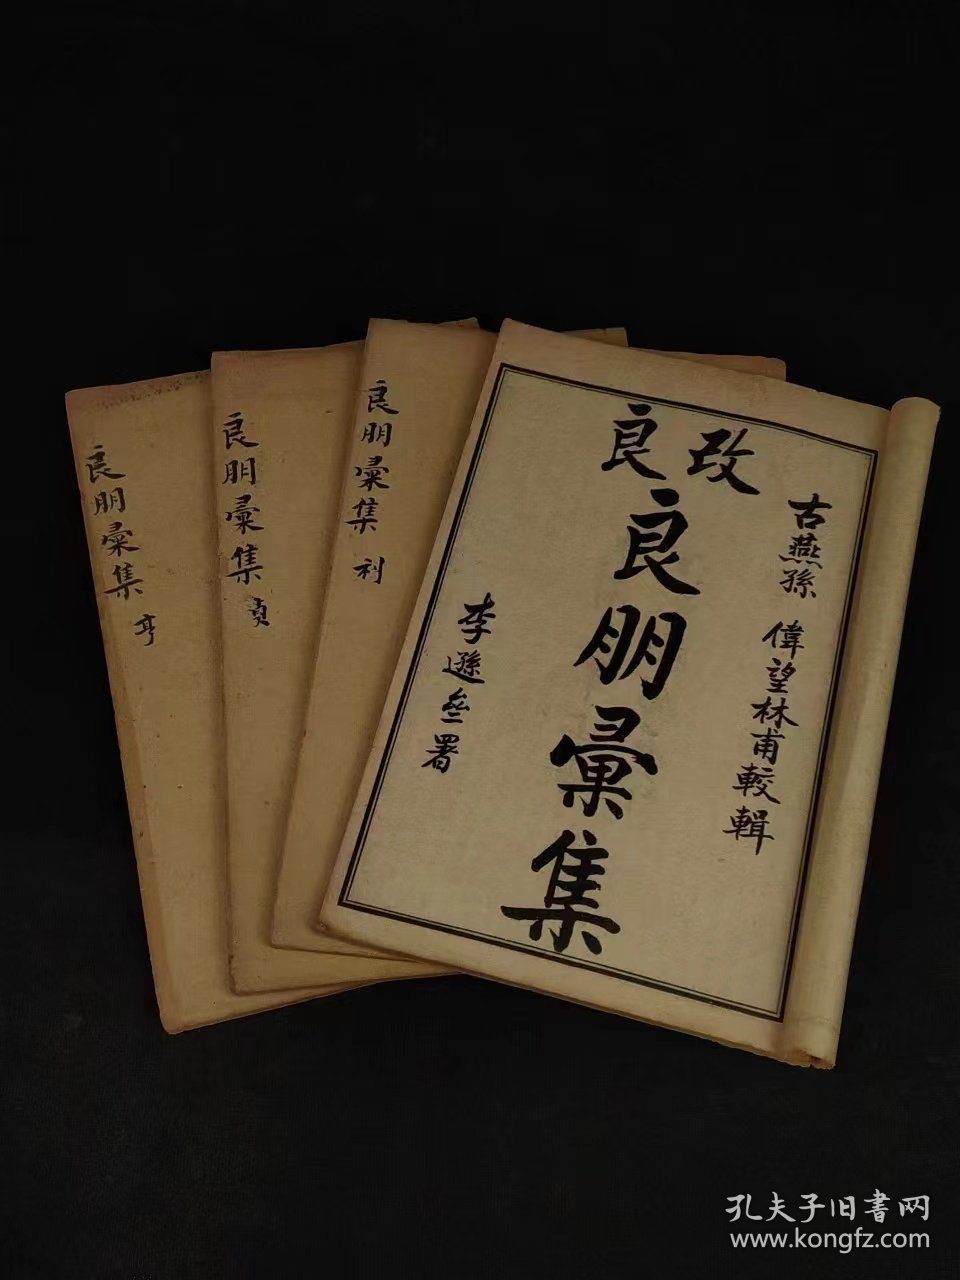 改良
良朋彙集
古燕孫
偉望林甫較輯
李遜叄署
良朋彙集 利
良朋彙集 貞
良朋彙集 亨
孔夫子旧書网
www.kongfz.com